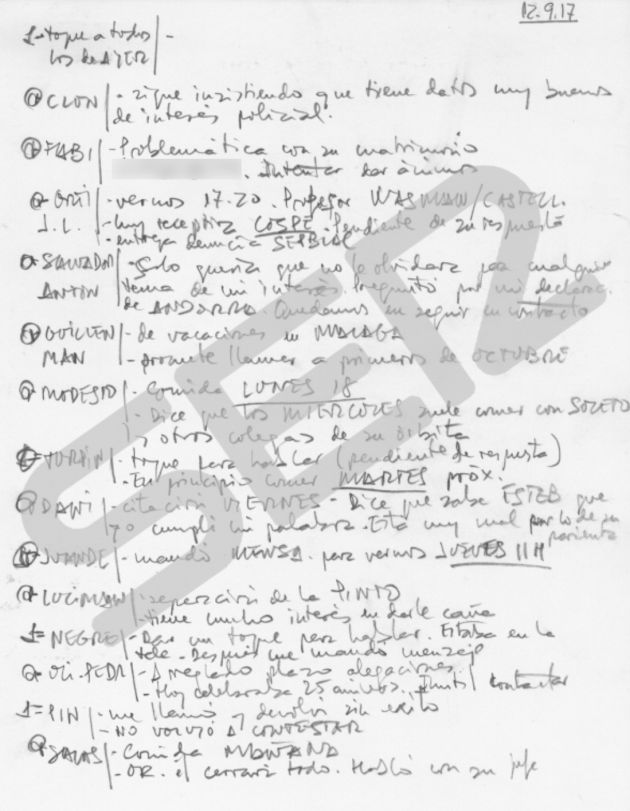 12.9.17
1=toque a todos
los de AYER
CLON - sigue insistiendo que tiene datos muy buenos
de interés policial.
FABI - Problemática con su matrimonio
. Intentar dar ánimos
ORTI - vernos 17.20. Profesor WASMAN/CASTELL.
J.L. - muy receptiva COSPE. Pendiente de su respuesta
- entrega denuncia SEPBLAC
SALVADOR - Solo quería que no le olvidara por cualquier
ANTON tema de mi interés. Preguntó por mi declarac.
de ANDORRA. Quedamos en seguir en contacto
GUILLEN - de vacaciones en MALAGA
MAN - promete llamar a primeros de OCTUBRE
MODESTO - Comida LUNES 18
- Dice que los MIERCOLES suele comer con SOLETO
y otros colegas de su órbita
- toque para hablar (pendiente de respuesta)
- En principio comer MARTES próx.
DANI - citación VIERNES - Dice que sabe ESTEB que
yo cumplí mi palabra. Está muy mal por lo de su
parienta
JUANDE - mandó MENSA. para vernos JUEVES 11 H
- separación de la PINTO
- tiene mucho interés en darle caña
1=NEGRE - Dar un toque para hablar. Estaba en la
tele. Después me mandó mensaje
- Arreglado plazo alegaciones.
- Hoy celebraba 25 anivers. Inútil contactar
1=PIN - me llamó y devolví sin éxito
- NO VOLVIÓ A CONTESTAR
SALAS - Comida MAÑANA
- OK. el cerrará todo. Habló con su jefe
SER